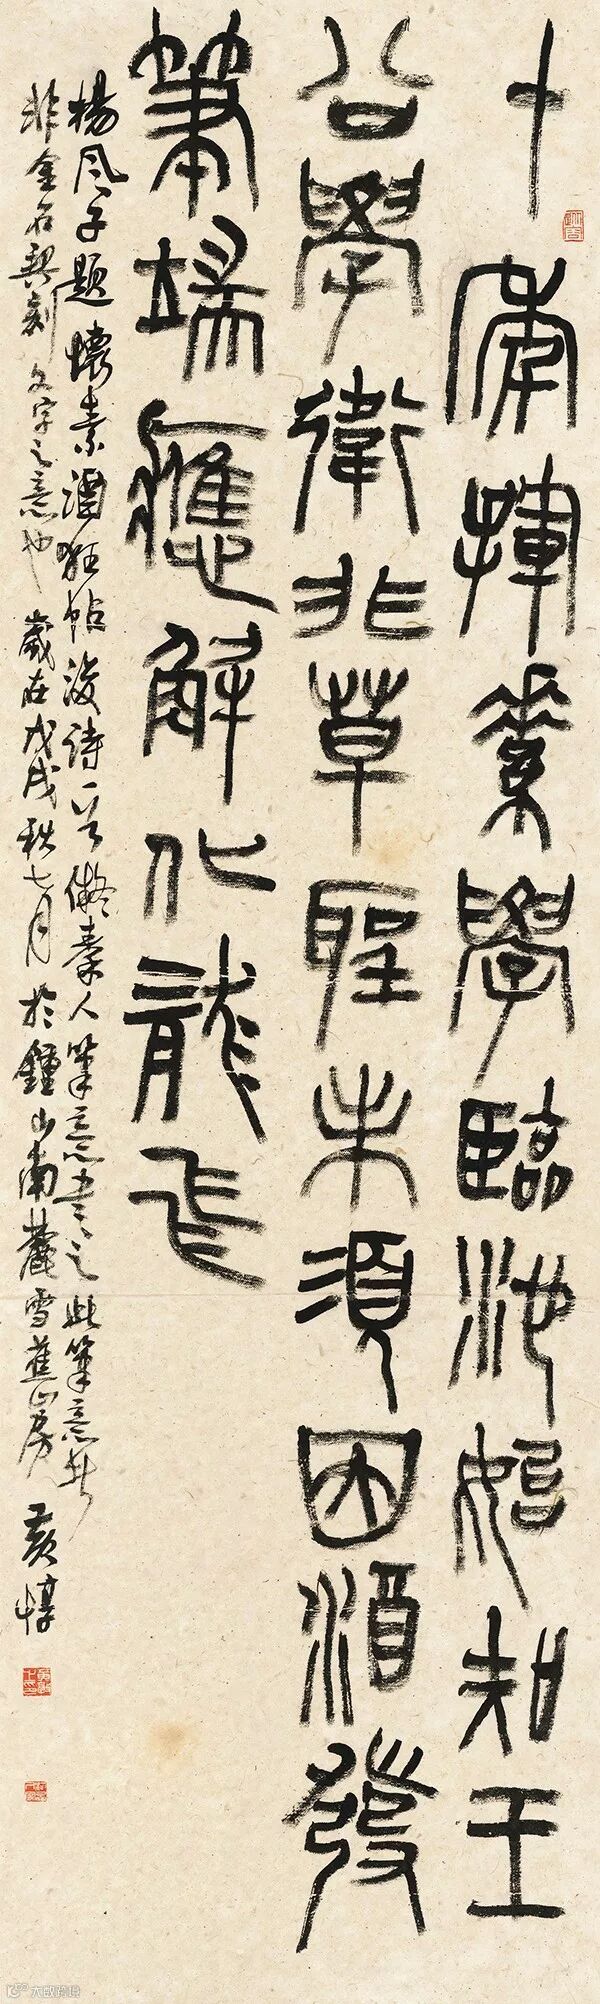 十年揮素學臨池始知王
公學衛非草聖未須因酒發
筆端應解化龍飛
楊风子題懷素酒狂帖後詩一首儗秦人筆意書之此筆意者
非金石契刻文字之意也歲在戊戌秋七月於鍾山南麓雪蕉山房黃惇
大数跨境